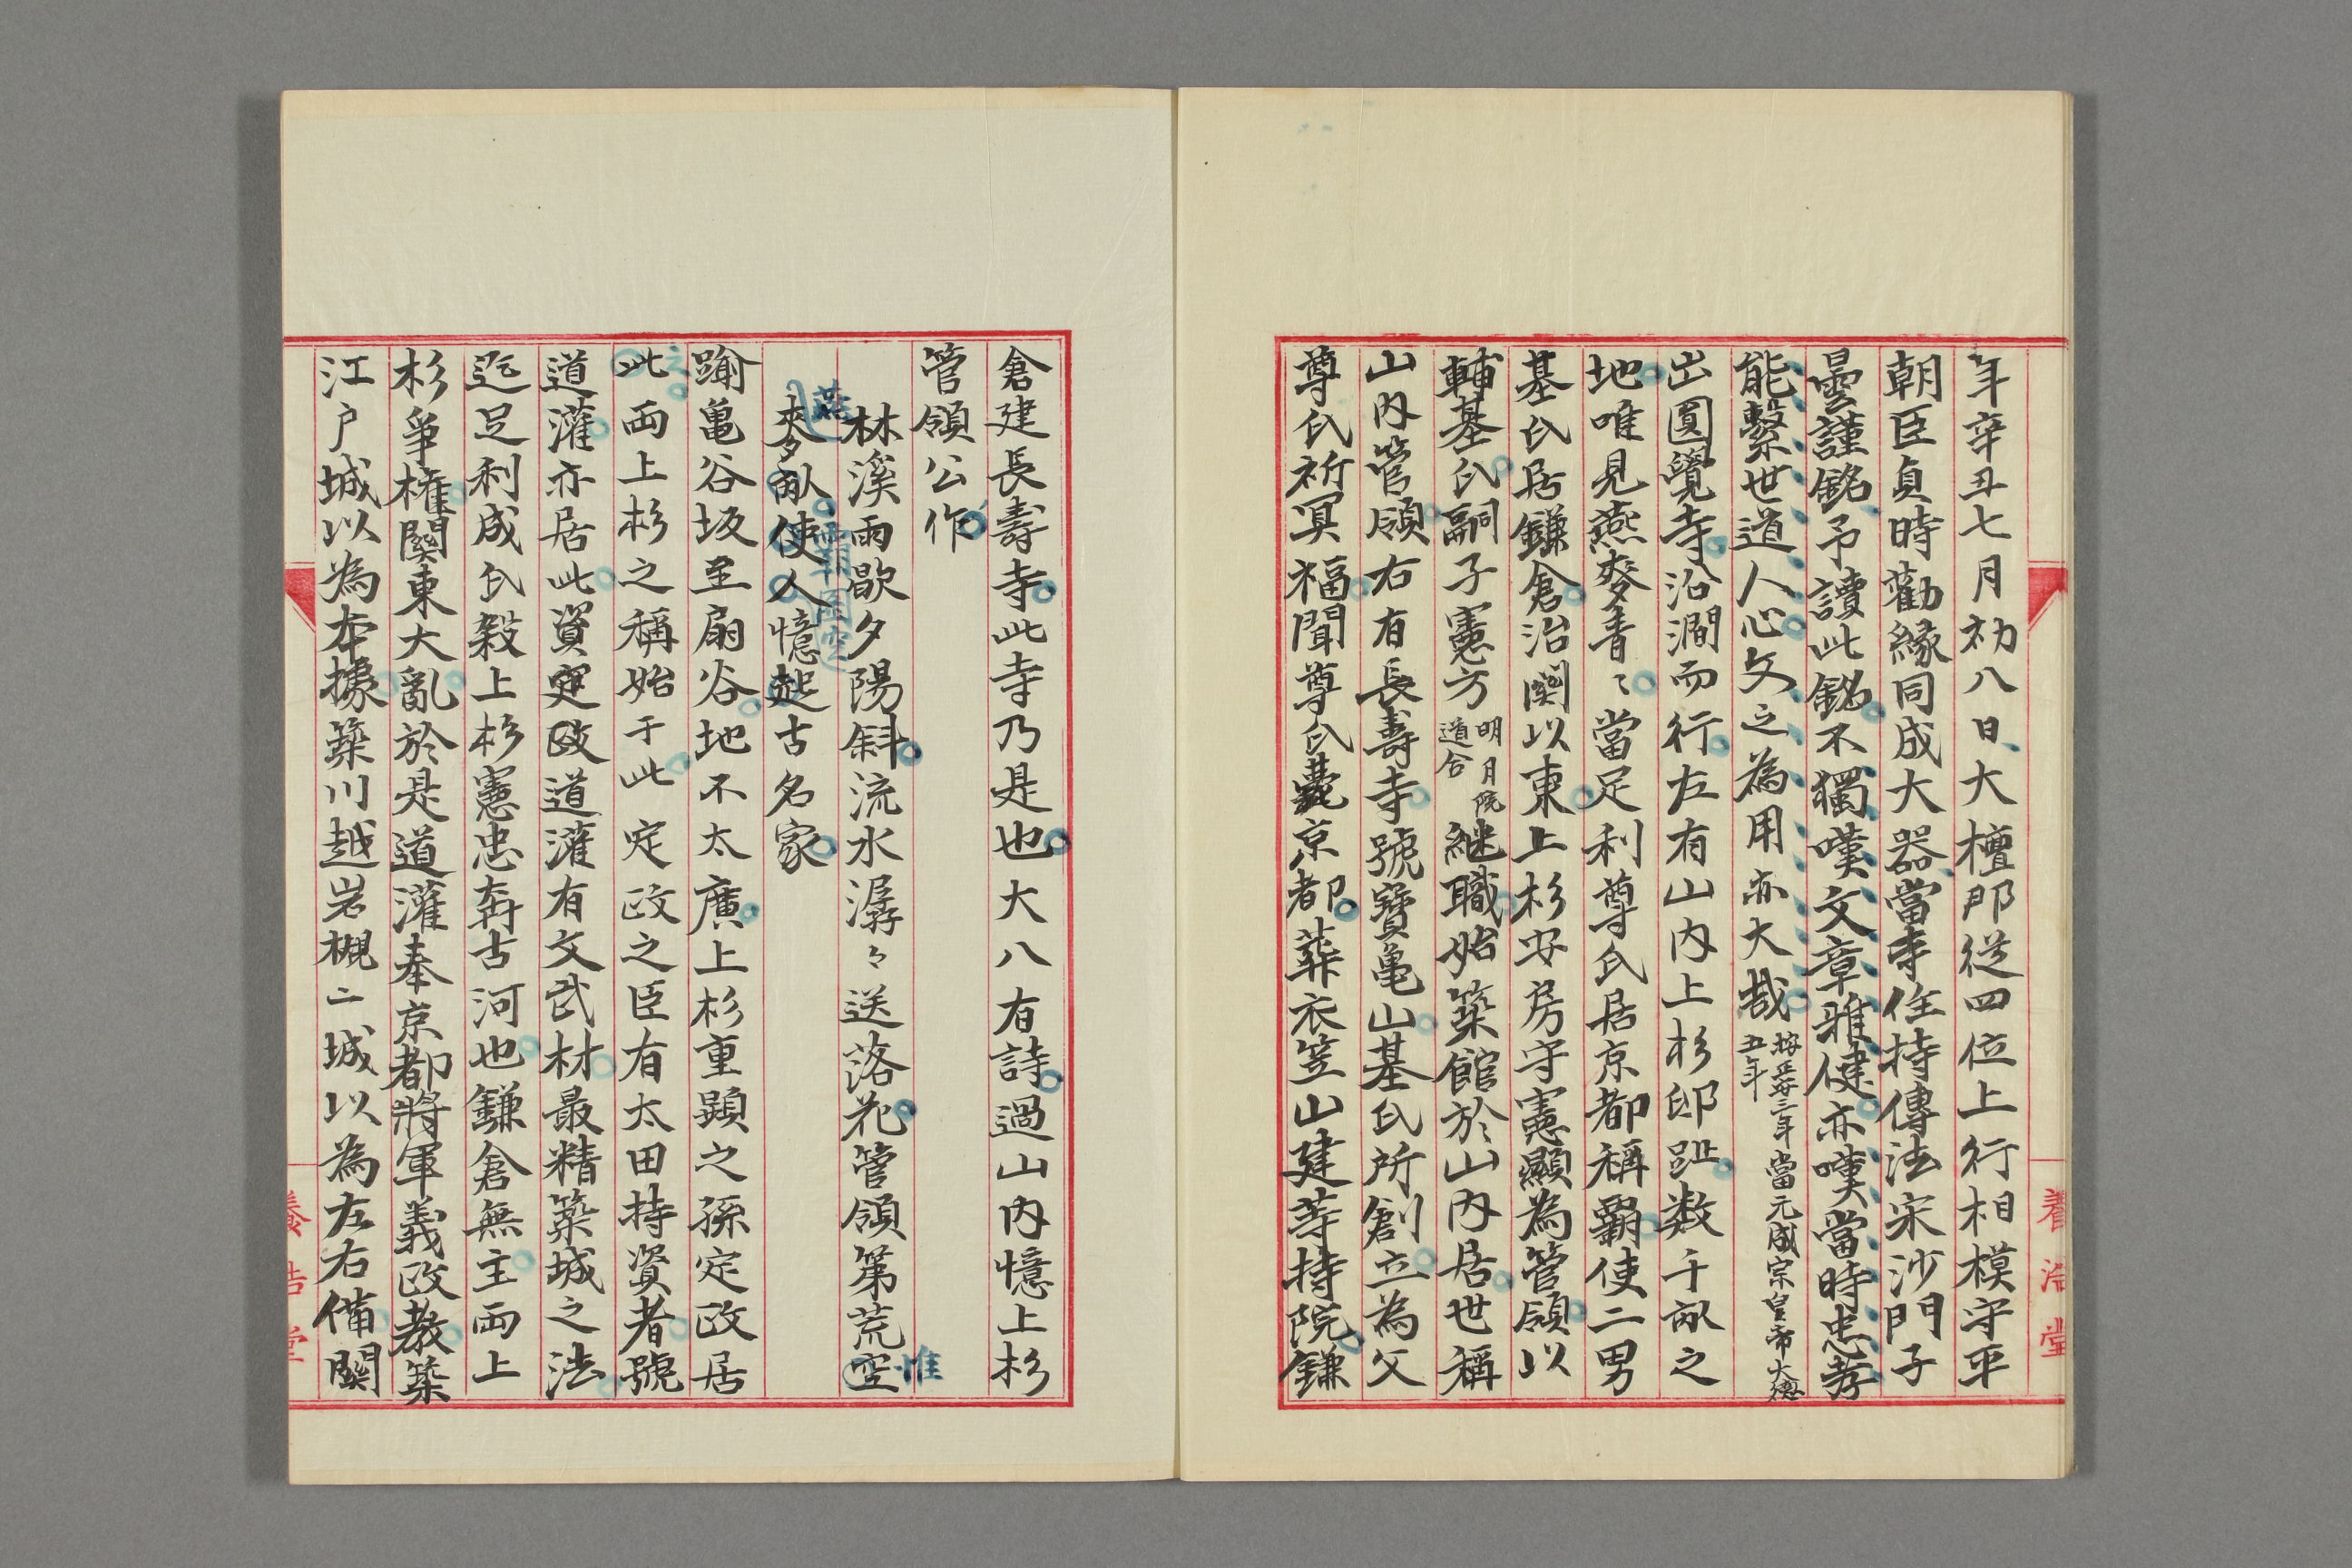 年辛丑七月初八日大檀那従四位上行相模守平
朝臣貞時勸緣同成大器當寺住持傳法宋沙門子
曇謹銘予讀此銘不獨嘆文章雅健亦嘆當時忠孝
能繫世道人心文之為用亦大哉 按正安三年當元成宗皇帝大德五年
出圓覺寺沿澗而行左有山内上杉邸趾数千畝之
地唯見燕麥青〻當足利尊氏居京都稱覇使二男
基氏居鎌倉治関以東上杉安房守憲顯為管領以
輔基氏嗣子憲方 明月院道合 継職始築館於山内居世稱
山内管領右有長壽寺號寶亀山基氏所創立為父
尊氏祈冥福聞尊氏薨京都葬衣笠山建等持院鎌
倉建長壽寺此寺乃是也大八有詩過山内憶上杉
管領公作
林溪雨歇夕陽斜流水潺々送落花管領第荒空
惟
燕
麥畝使人憶起古名家
踰亀谷坂至扇谷地不太廣上杉重顕之孫定政居
此両上杉之稱始于此定政之臣有太田持資者號
道灌亦居此資定政道灌有文武材最精築城之法
迄足利成氏殺上杉憲忠奔古河也鎌倉無主両上
杉爭権関東大亂於是道灌奉京都將軍義政教築
江戸城以為本據築川越岩槻二城以為左右備関
養浩堂
養浩堂